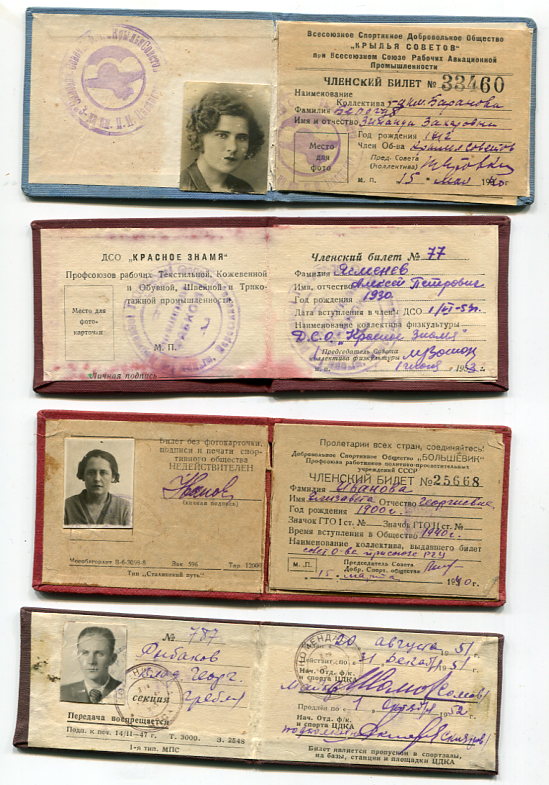 Всесоюзное Спортивное Добровольное Общество
"КРЫЛЬЯ СОВЕТОВ"
при Всесоюзном Союзе Рабочих Авиационной
Промышленности
ЧЛЕНСКИЙ БИЛЕТ № 33460
Наименование
Коллектива
Фамилия
Имя и отчество Зинаида Захаровна
Год рождения 1912
Член Об-ва
Место
для
фото
Пред. Совета
(Коллектива)
М. П. 15 мая 1940 г.
ДСО „КРАСНОЕ ЗНАМЯ"
Профсоюзов рабочих Текстильной, Кожевенной
и Обувной, Швейной и Трико-
тажной промышленности.
Место для
фото-
карточки
М. П.
Личная подпись
Членский билет № 77
Фамилия Ясменев
Имя, отчество Алексей Петрович
Год рождения 1930
Дата вступления в члены ДСО 1/VI-53г.
Наименование коллектива физкультуры
Д.С.О. „Красное Знамя"
Председатель Совета
коллектива физкультуры
1 июня 1953 г.
Билет без фотокарточки,
подписи и печати спор-
тивного общества
НЕДЕЙСТВИТЕЛЕН
(личная подпись)
Мособлгорлит В-6-3099-8 Зак. 596 Тир. 12000
Тип. „Сталинский путь".
Пролетарии всех стран, соединяйтесь!
Добровольное Спортивное Общество „БОЛЬШЕВИК"
Профсоюза работников политико-просветительных
учреждений СССР
ЧЛЕНСКИЙ БИЛЕТ № 25668
Фамилия Иванова
Имя Елизавета Отчество Георгиевна
Год рождения 1900г.
Значок ГТО I ст. № Значок ГТО II ст. №
Время вступления в Общество 1940г.
Наименование коллектива, выдавшего билет
М. П.
Председатель Совета
Добр. Спорт. общества
15 марта 1940 г.
№ 787
Рыбаков
Влад. Георг.
секция Гребли
Передача воспрещается
Подп. к печ. 14/II—47 г. Т. 3000. З. 2548
1-я тип. МПС
20 августа 1951
Действит. по 31 декаб 1951
Нач. Отд. ф/к
и спорта ЦДКА
Продлён по 1 1952
Нач. Отд. ф/к
и спорта ЦДКА
Билет является пропуском в спортзалы,
на базы, станции и площадки ЦДКА